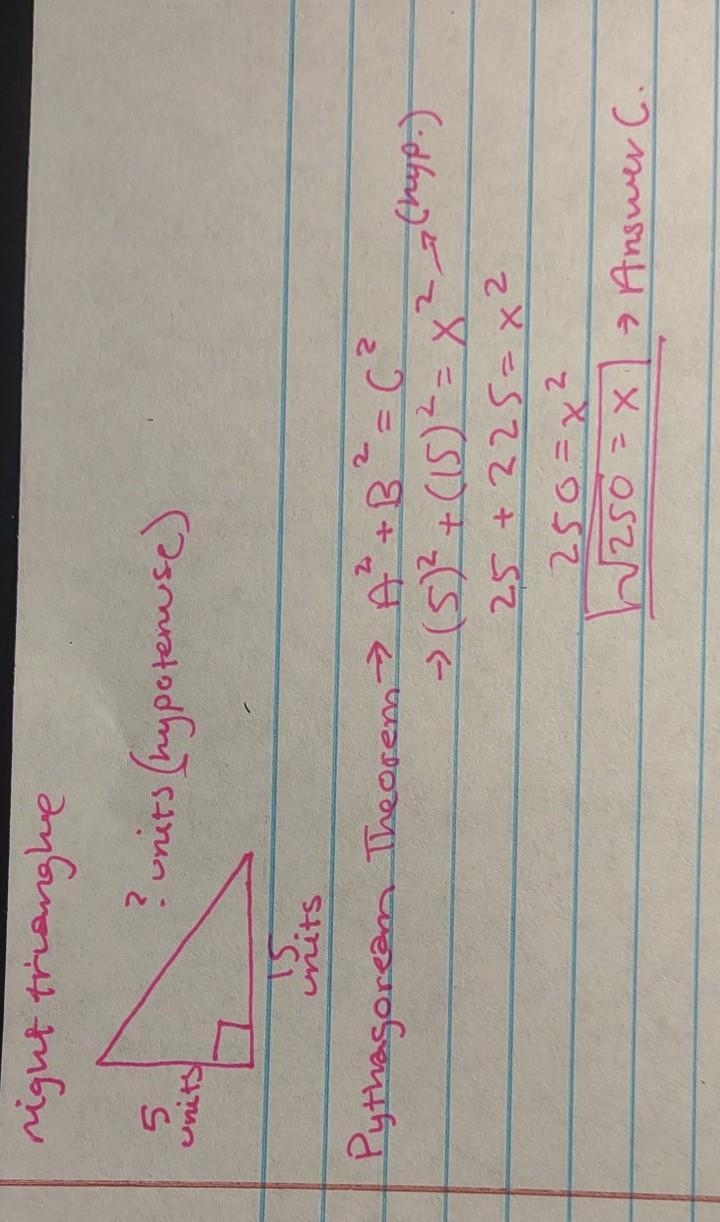 right trianghe
? units (hypotenuse)
5
units
15
units
Pythagorean Theorem → A² + B² = C²
→ (5)² + (15)² = x² → (hyp.)
25 + 225 = x²
250 = x²
√250 = x → Answer C.